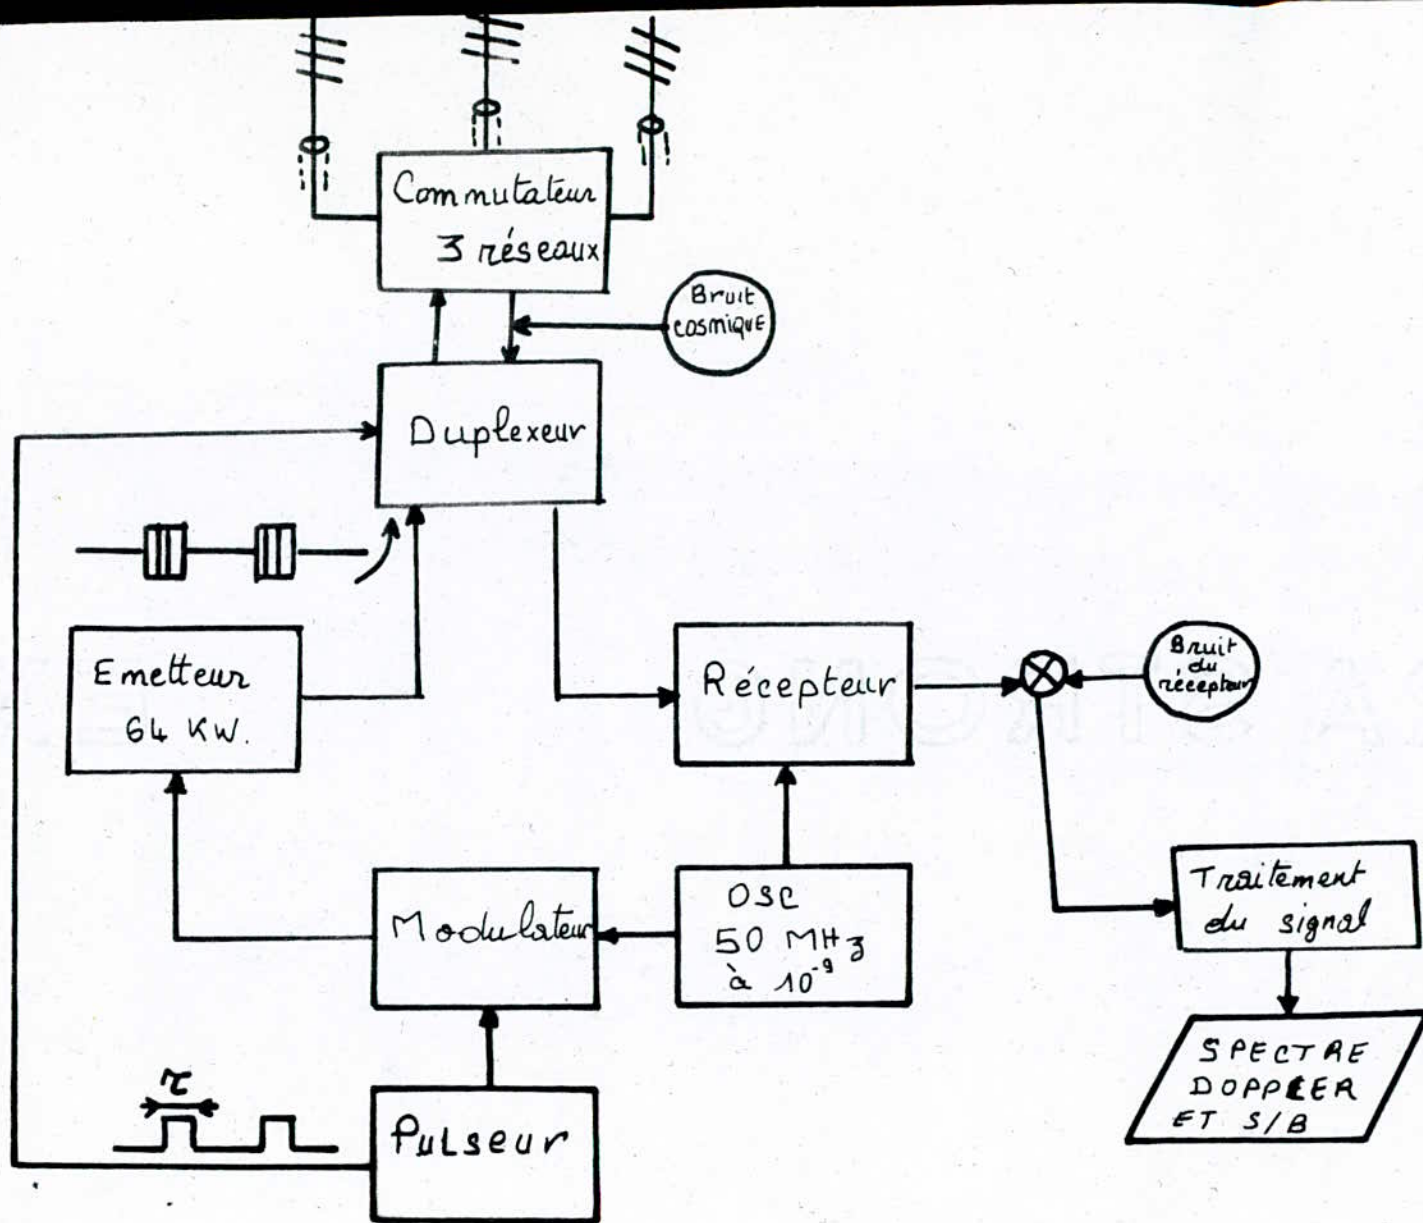 Commutateur
3 réseaux
Bruit
cosmiquE
Duplexeur
Emetteur
64 KW.
Récepteur
Bruit
du
récepteur
Modulateur
OSC
50 MHz
à 10⁻⁹
Traitement
du signal
τ
Pulseur
SPECTRE
DOPPLER
ET S/B